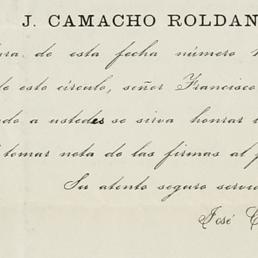 J. CAMACHO ROLDAN
de esta fecha número
de este círculo, señor Francisco
a ustedes se sirva honrar
tomar nota de las firmas al
Su atento seguro
José